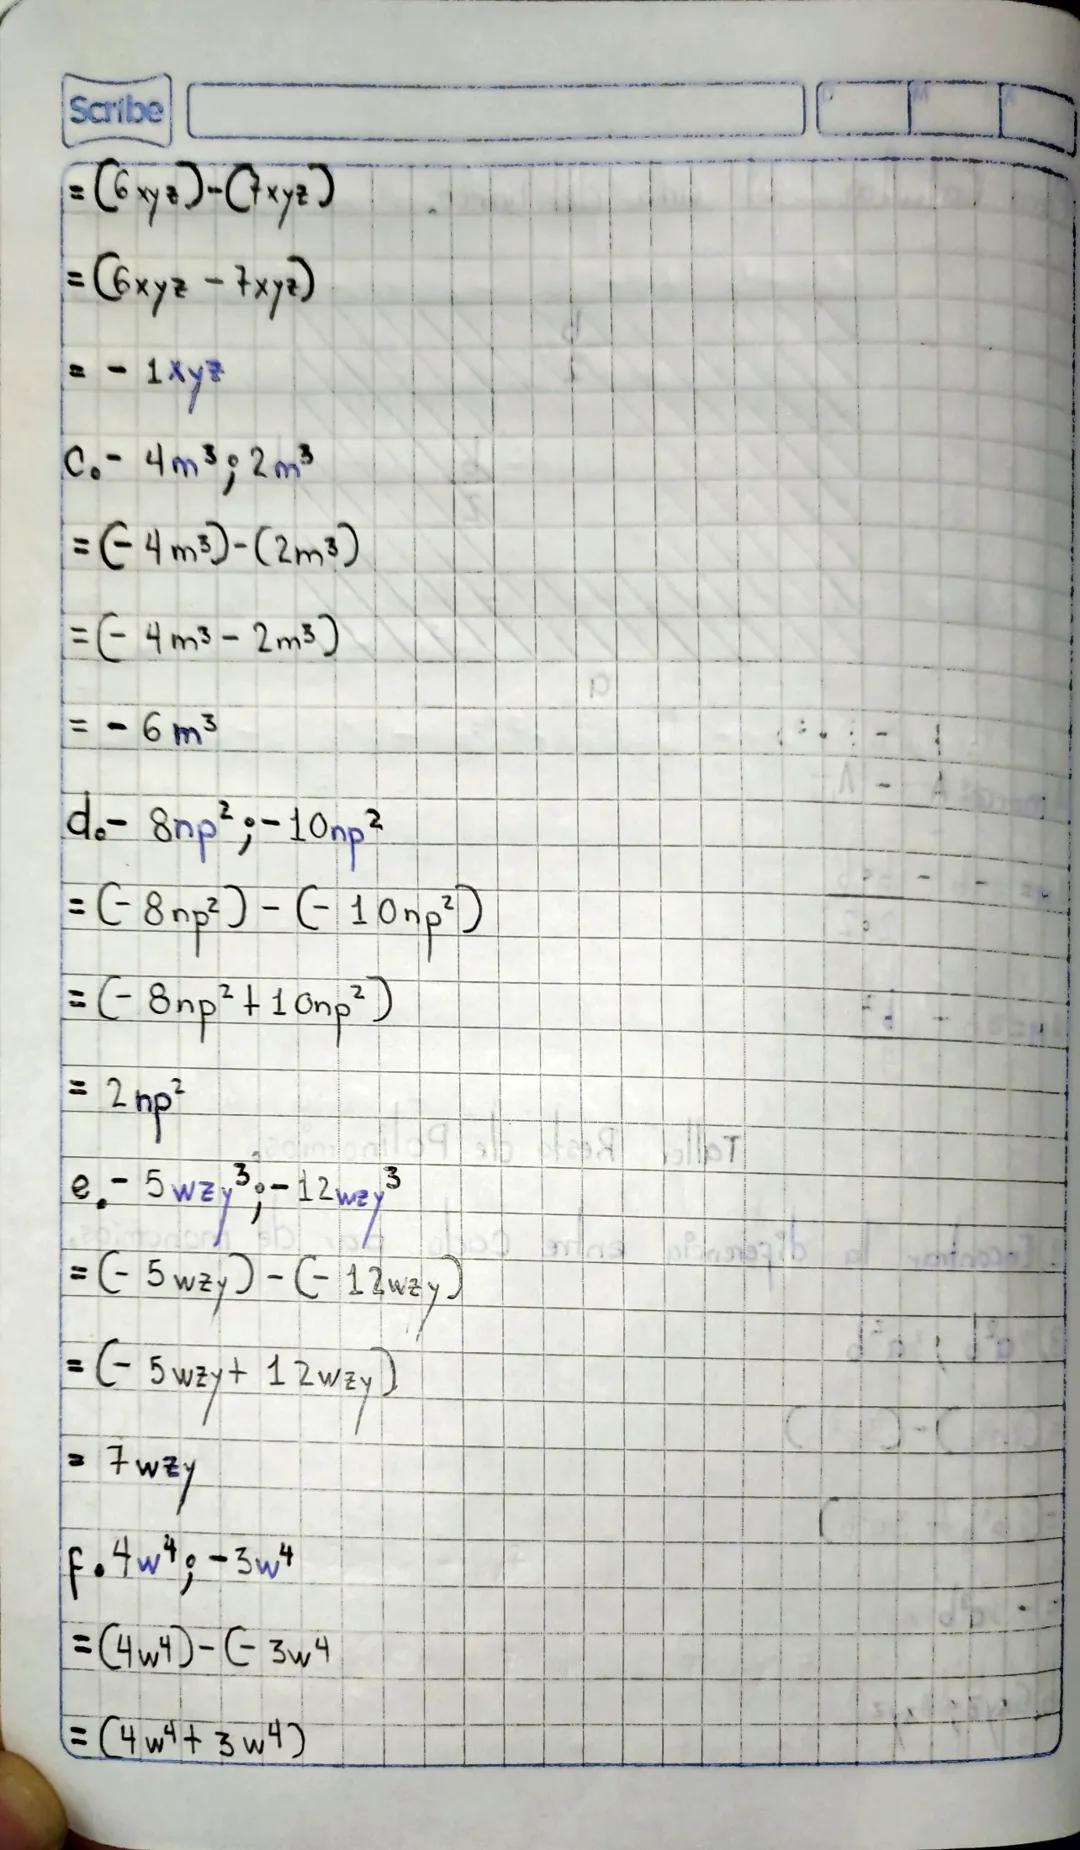 Scribe
= (6xyz)-(7xyz)
= (6xyz - 7xyz)
= - 1xyz
c.- 4m³; 2m³
= (- 4m³)-(2m³)
= (- 4m³ - 2m³)
= - 6m³
d.- 8np²; - 10np²
= (- 8np²) - (- 10np²)
= (- 8np² + 10np²)
= 2np²
e.- 5wzy³; - 12wzy³
= (- 5wzy) - (- 12wzy)
= (- 5wzy + 12wzy)
= 7wzy
f. 4w⁴; - 3w⁴
= (4w⁴) - (- 3w⁴
= (4w⁴ + 3w⁴)